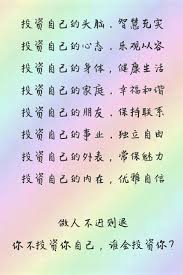 投资自己的头脑，智慧充实
投资自己的心态，乐观从容
投资自己的身体，健康生活
投资自己的家庭，幸福和谐
投资自己的朋友，保持联系
投资自己的事业，独立自由
投资自己的外表，常保魅力
投资自己的内在，优雅自信
做人不进则退
你不投资你自己，谁会投资你？